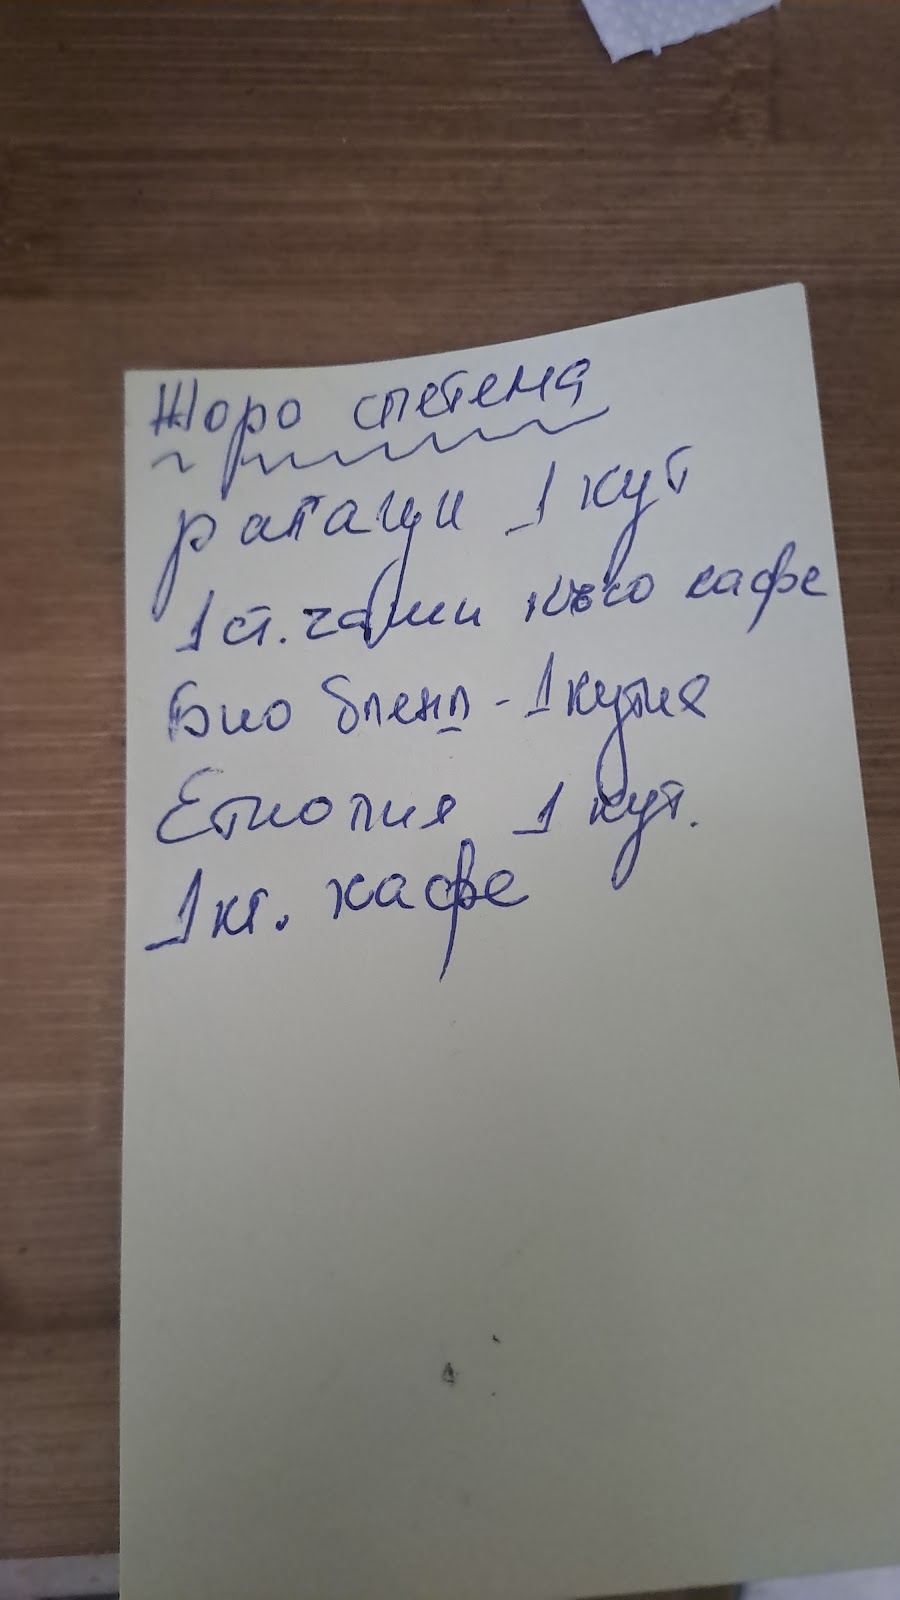 Жоро спетема
рапаци 1 кут
1 ст. чаши късо кафе
Био бленд - 1 кутия
Етиопия 1 кут.
1 кг. кафе